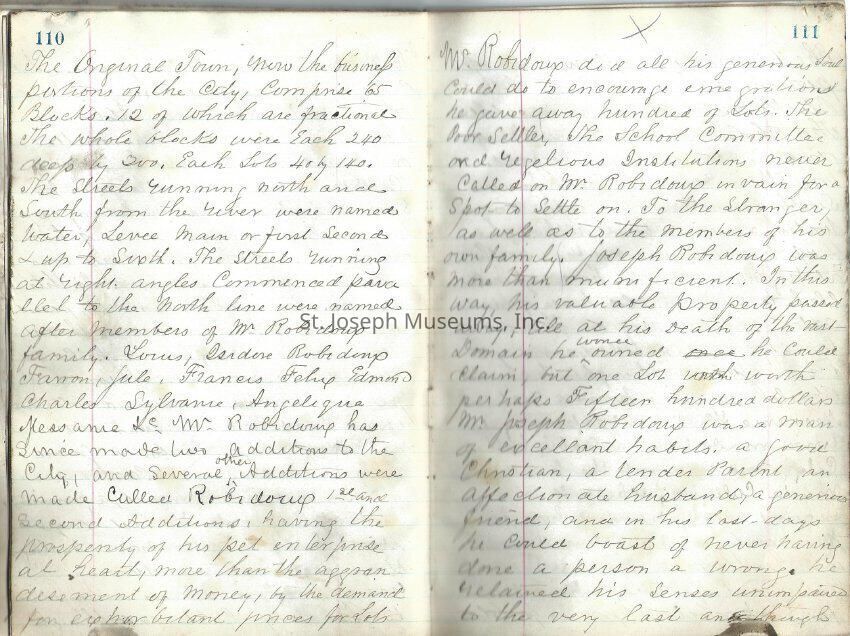 110
The Original Town, now the business
portions of the City, Comprise 65
Blocks. 12 of which are fractional
The whole blocks were Each 240
deep by 300. Each Lots 40 by 140.
The Streets running north and
South from the river were named
Water, Levee Main or first Second
& up to Sixth. The Streets running
at right angles Commenced para
llel to the North line were named
after members of Mr Robidoux
family. Louis, Isidore Robidoux
Farron, Jule, Francis Felix Edmond
Charles Sylvanie, Angelique
Messanie &c Mr Robidoux has
Since made two additions to the
City, and Several other Additions were
made Called Robidoux 1st and
Second Additions, having the
prosperity of his pet enterprise
at heart, more than the aggran
disement of Money, by the demand
for exhorbitant prices for Lots
111
Mr. Robidoux did all his generous Soul
Could do to encourage emegrations
he gave away hundred of Lots. The
Poor Settler, The School Committee
and regelious Institutions never
Called on Mr Robidoux in vain for a
Spot to Settle on. To the Stranger,
as well as to the members of his
own family. Joseph Robidoux was
more than munificient. In this
way, his valuable Property passed
at his Death of the vast
Domain he owned he Could
Claim, but one Lot worth
perhaps Fifteen hundred dollars
Mr Joseph Robidoux was a man
of excellant habits. a good
Christian, a tender Parent, an
affectionate husband, a generious
friend, and in his last days
he Could boast of never having
done a person a wrong. he
retained his Senses unimpaired
to the very last and though
St.Joseph Museums, Inc.